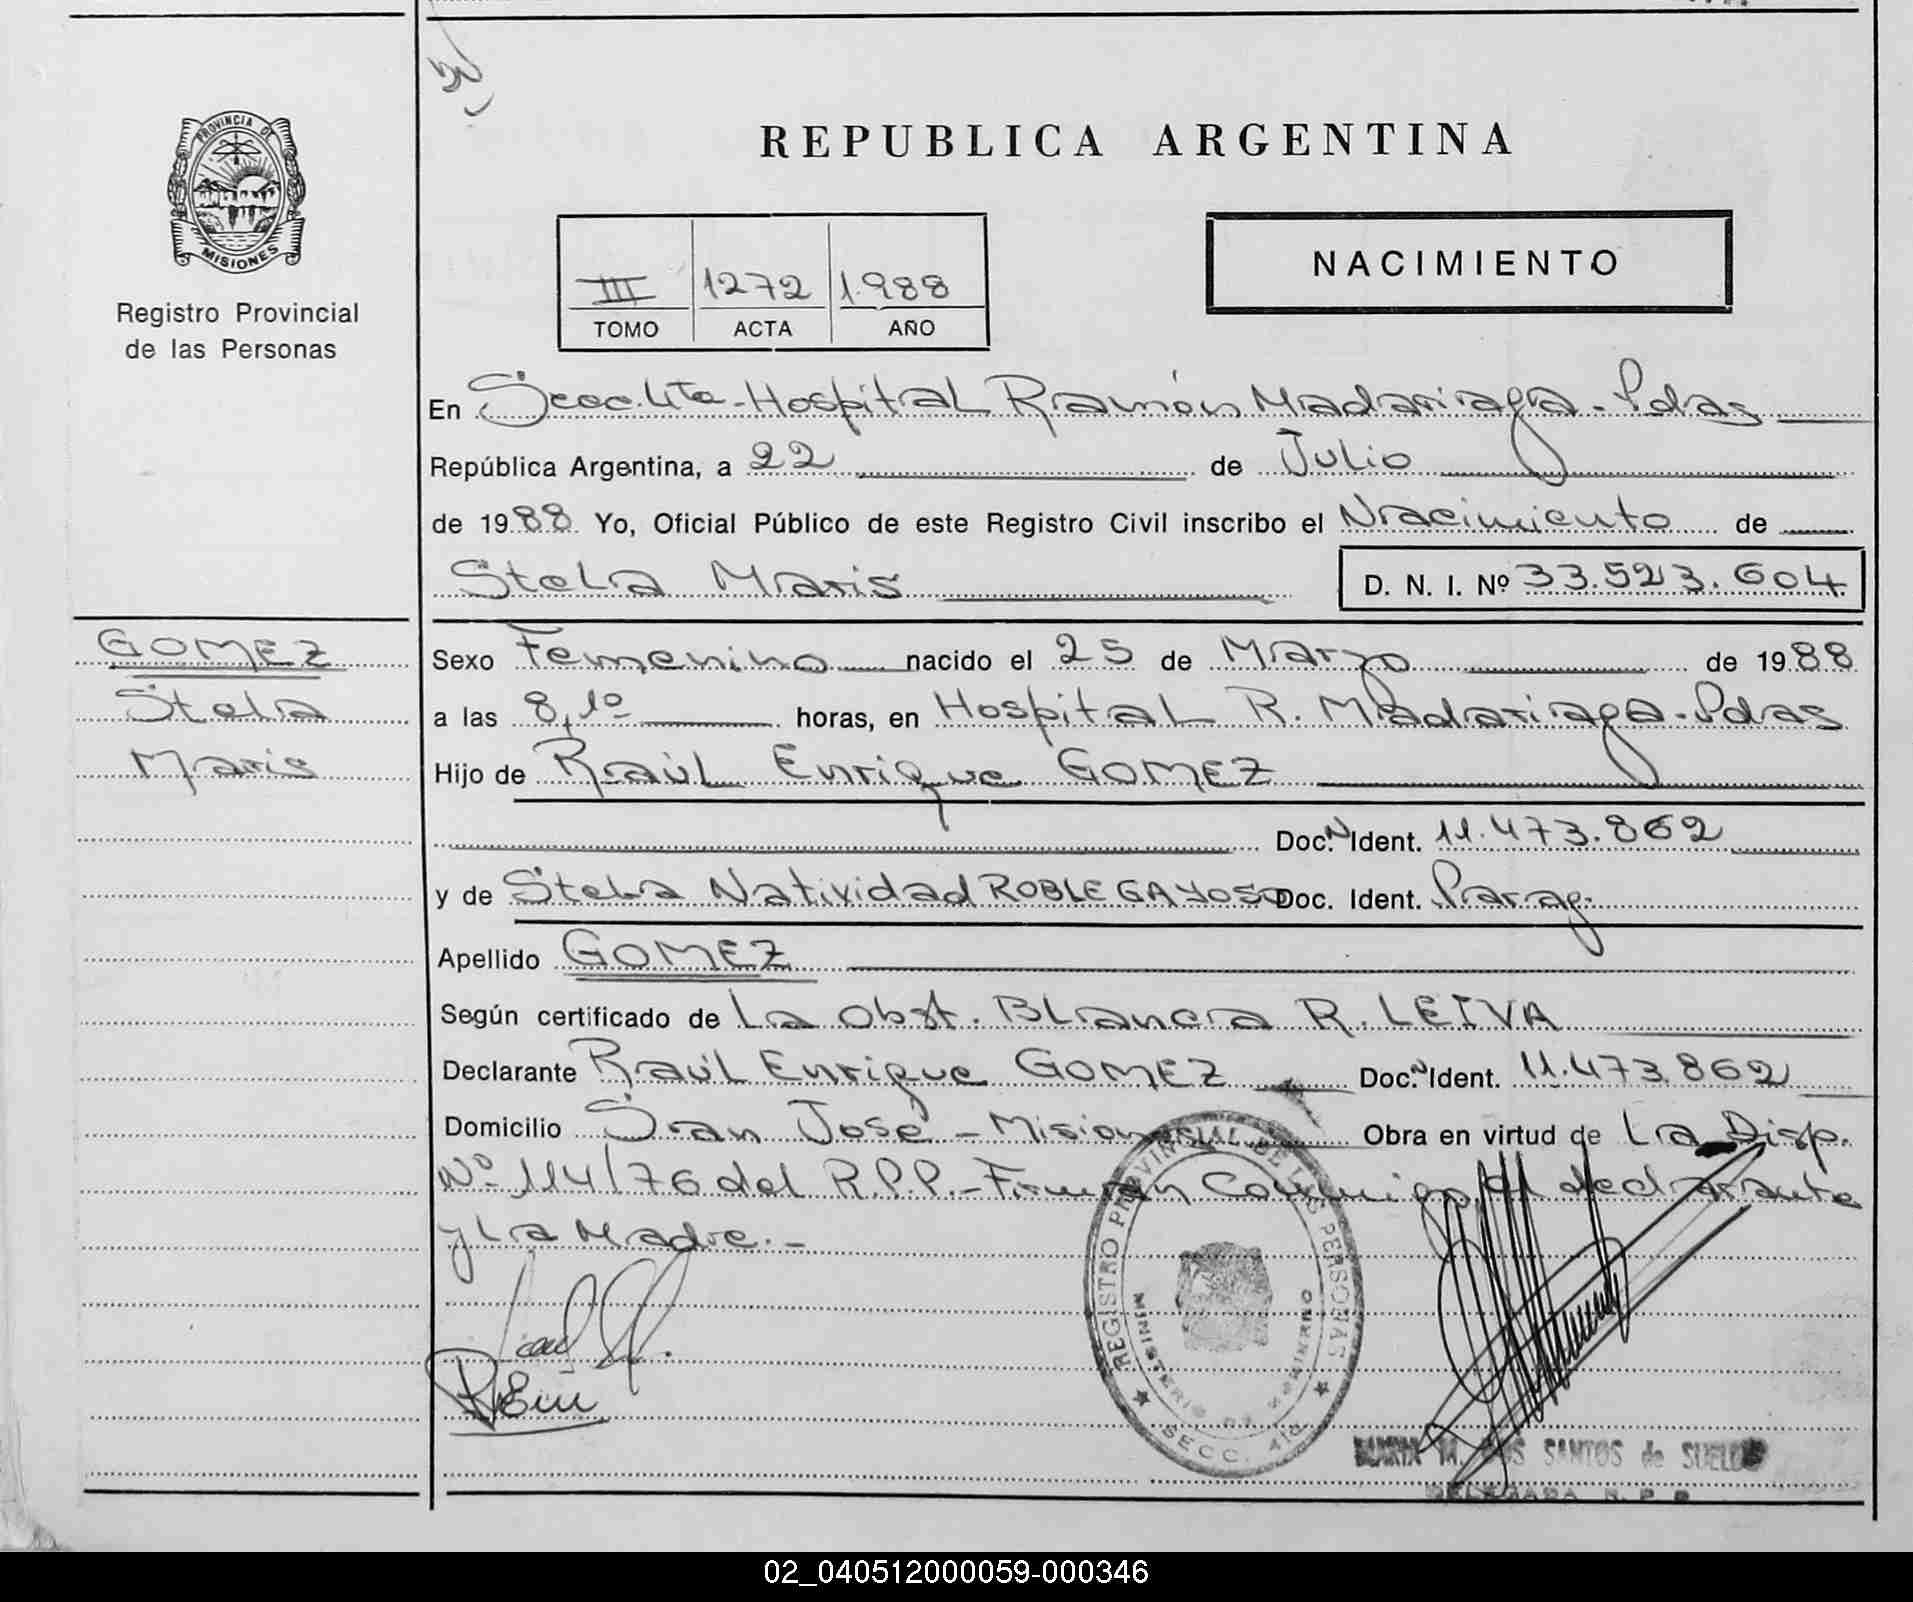 PROVINCIA DE
MISIONES
Registro Provincial
de las Personas
REPUBLICA ARGENTINA
III 1272 1.988
TOMO ACTA AÑO
NACIMIENTO
En Secc. 4ta - Hospital Ramón Madariaga - Pdas
República Argentina, a 22 de Julio
de 1988 Yo, Oficial Público de este Registro Civil inscribo el Nacimiento de
Stela Maris D. N. I. Nº 33.523.604
GOMEZ
Stela
Maris
Sexo Femenino nacido el 25 de Marzo de 1988
a las 8,10 horas, en Hospital R. Madariaga - Pdas
Hijo de Raúl Enrique GOMEZ
Doc.N Ident. 11.473.862
y de Stela Natividad ROBLE GAYOSO Doc. Ident. Parag.
Apellido GOMEZ
Según certificado de La Obst. Blanca R. LEIVA
Declarante Raúl Enrique GOMEZ Doc.N Ident. 11.473.862
Domicilio San José - Misiones Obra en virtud de La Disp.
Nº 114/76 del R.P.P. - Firman Conmigo el declarante
y La Madre. -
REGISTRO PROVINCIAL DE LAS PERSONAS
MINISTERIO DE GOBIERNO
SECC. 4ta
MARIA M. DOS SANTOS de SUELDO
DELEGADA R. P. P.
02_040512000059-000346